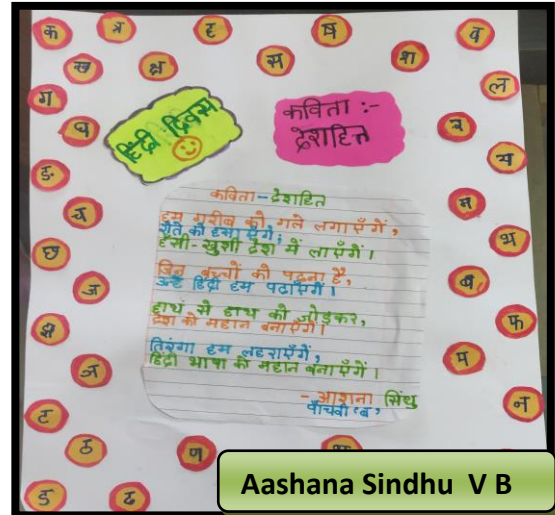 क त्र ह ष व
ख क्ष स श ल
ग घ र य
ङ म
च भ
छ ब
ज फ
झ प
ञ न
ट
ठ ण
ड ढ
हिंदी दिवस
कविता :-
देशहित
कविता - देशहित
हम गरीब को गले लगाएँगें,
रोते को हसाएँगे;
हँसी-खुशी देश में लाएँगें।
जिन बच्चों को पढ़ना है,
उन्हें हिंदी हम पढाएँगें।
हाथ से हाथ को जोड़कर,
देश को महान बनाएँगें।
तिरंगा हम लहराएँगें,
हिंदी भाषा को महान बनाएँगें।
- आशना सिंधु
पाँचवी 'ब'
Aashana Sindhu V B